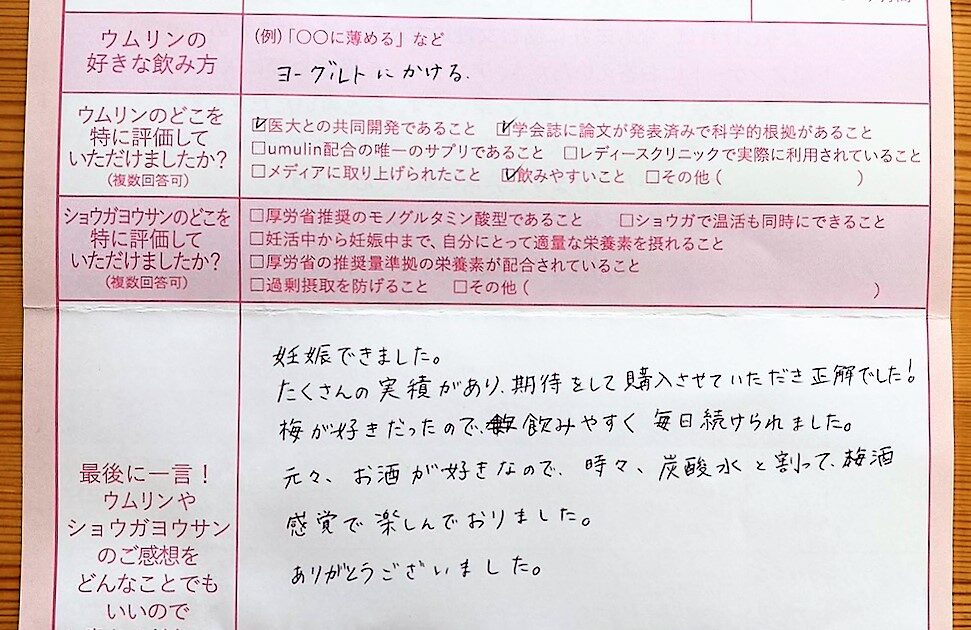 ウムリンの
好きな飲み方
(例)「〇〇に薄める」など
ヨーグルトにかける.
ウムリンのどこを
特に評価して
いただけましたか?
(複数回答可)
☑医大との共同開発であること ☑学会誌に論文が発表済みで科学的根拠があること
□umulin配合の唯一のサプリであること □レディースクリニックで実際に利用されていること
□メディアに取り上げられたこと ☑飲みやすいこと □その他 ( )
ショウガヨウサンのどこを
特に評価して
いただけましたか?
(複数回答可)
□厚労省推奨のモノグルタミン酸型であること □ショウガで温活も同時にできること
□妊活中から妊娠中まで、自分にとって適量な栄養素を摂れること
□厚労省の推奨量準拠の栄養素が配合されていること
□過剰摂取を防げること □その他 ( )
最後に一言!
ウムリンや
ショウガヨウサン
のご感想を
どんなことでも
いいので
妊娠できました。
たくさんの実績があり、期待をして購入させていただき正解でした!
梅が好きだったので、飲みやすく 毎日続けられました。
元々、お酒が好きなので、時々、炭酸水と割って、梅酒
感覚で楽しんでおりました。
ありがとうございました。